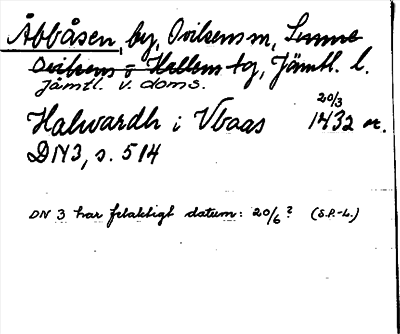 Åbbåsen, by, Ovikens sn, Sunne
Ovikens o Hallens tg, Jämtl. l.
Jämtl. v. doms.
Halwardh i Vbaas 20/3 1432 or.
DN3, s. 514
DN 3 har felaktigt datum: 20/6? (S.P.-L.)